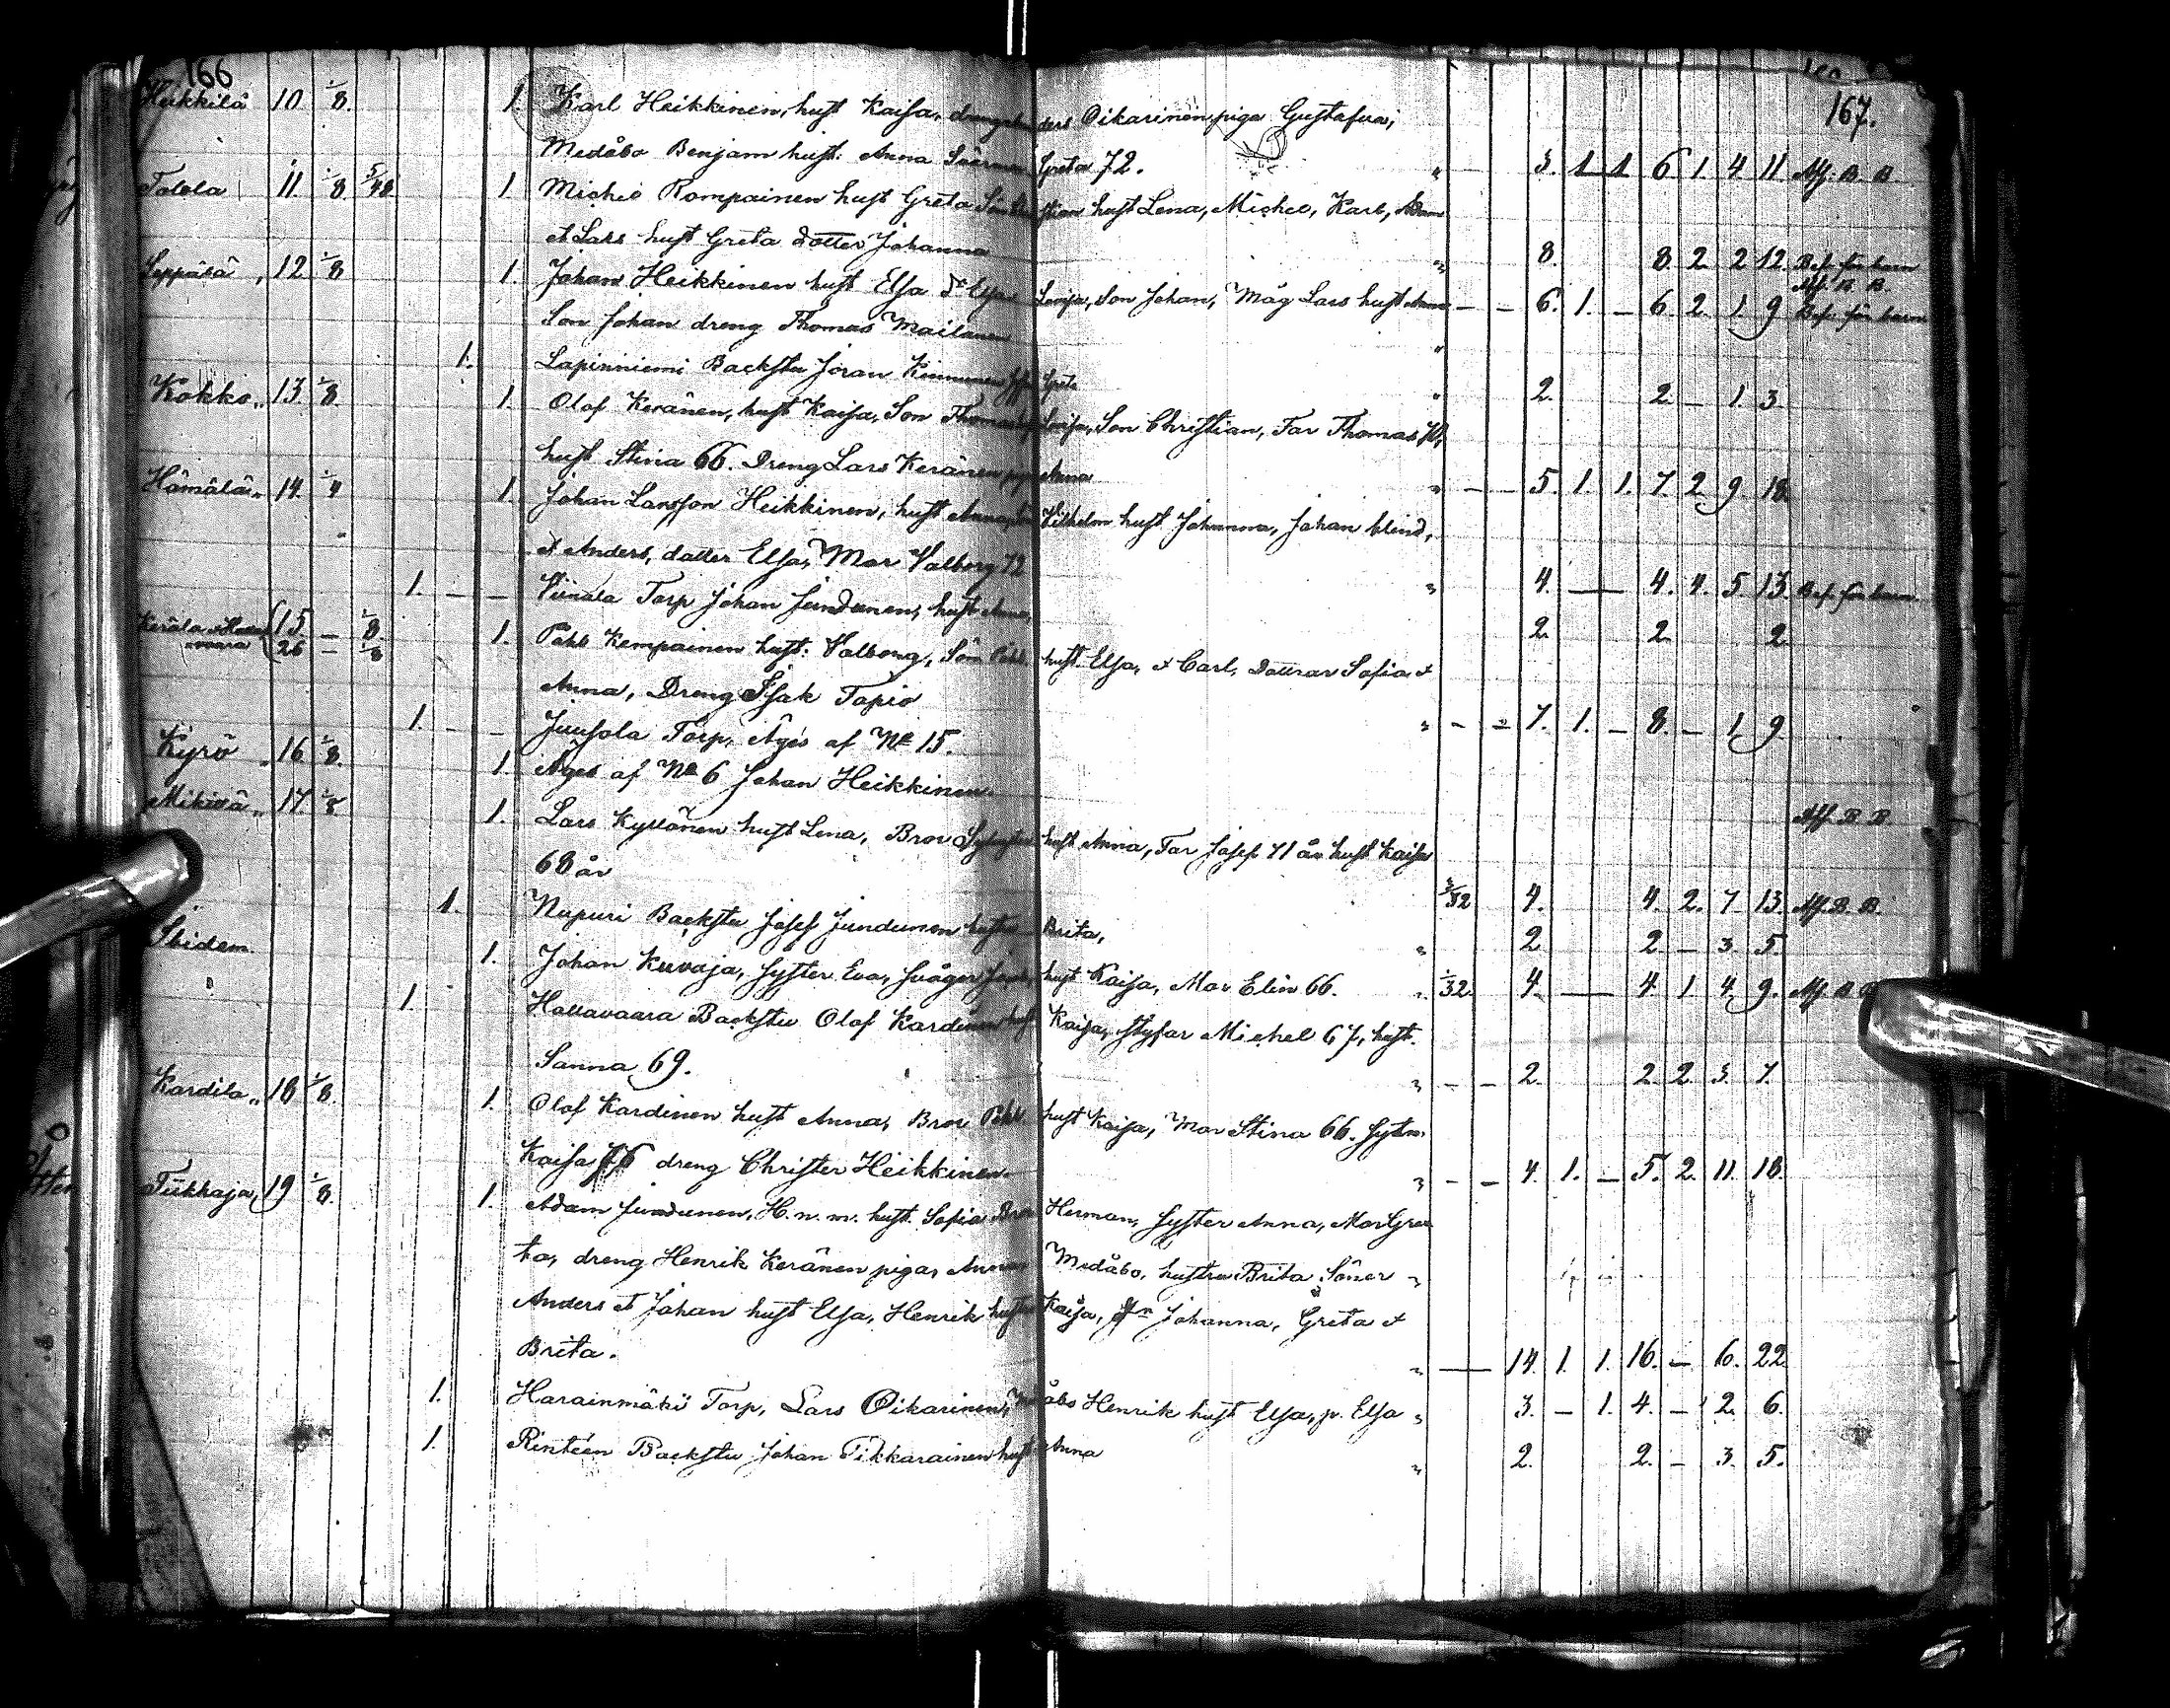 166
167.
Heikkilä 10 1/8. 1. Karl Heikkinen, hust Kaisa, dreng Oikarinen piga Gustafva,
Medåbo Benjam hust: Anna Greta 72. " 5. 1 1 6 1. 4 11. Aff. B. B.
Tolola 11. 1/8 5/48 1. Michel Kompainen hust Greta hust Lena, Michel, Karl, Adam
et Lars hust Greta dotter Johanna " 8. 8. 2. 2. 12. Bef. för barn
Aff. B. B.
Seppälä 12 1/8 1. Johan Heikkinen hust Elsa Lovisa, Son Johan, Måg Lars hust Anna — — 6. 1. — 6. 2. 1. 9 Bef. för barn
Son Johan dreng Thomas Mailanen "
1. Lapinniemi Backstu Jöran Kinnunen Greta " 2. 2. — 1. 3.
Kokko " 13. 1/8 1. Olof Keränen, hust Kaisa, Son Thomas Lovisa, Son Christian, Far Thomas
hust Stina 66. Dreng Lars Keränen Anna " — — 5. 1. 1. 7. 2. 9. 18.
Hämälä " 14. 1/4 1. Johan Larsson Heikkinen, hust Anna, Wilhelm hust Johanna, Johan blind,
et Anders, dotter Elsa, Mor Valborg 72 " 4. — 4. 4. 5 13. Bef. för barn
1. — — Viinala Torp Johan Jundunen, hust Anna, 2. 2. 2
15. — 1/8. 1. Påhl Kempainen hust: Valborg, Son Påhl hust. Elsa, et Carl, Dottrar Sofia et
26 — 1/8
Anna, Dreng Isak Tapio " — = 7. 1. — 8. — 1. 9.
1. — — Juusola Torp, Äges af No 15.
Kyrö " 16 1/8. 1. Äges af No 6 Johan Heikkinen. Aff. B. B.
Mikivä " 17. 1/8 1. Lars Kyllönen hust Lena, Bror hust Anna, Far Josef 71 år hust Kaisa
68 år 3/32 4. 4. 2. 7. 13. Aff. B. B.
1. Nupuri Backstu Josef Jundunen hustru Brita, " 2. 2 — 3. 5.
Ibidem. 1. Johan Kuvaja, Syster Eva, Svåger hust Kaisa, Mor Elin 66. " 1/32. 4. — 4. 1. 4. 9. Aff. B.
1. Hallavaara Backstu Olof Kardinen hust Kaisa, styffar Michel 67, hust.
Sanna 69. " — — 2. 2. 2. 3. 7.
Kardila " 18 1/8. 1. Olof Kardinen hust Anna, Bror Påhl hust Kaisa, Mor Stina 66.
Kaisa 76 dreng Christer Heikkinen. " — — 4. 1. — 5. 2. 11. 18.
Tikkaja, 19 1/8. 1. Adam Jundunen, H. n. m. hust. Sofia Bror Herman, Syster Anna, Mor Gre
ta, dreng Henrik Keränen pigas Anna Medåbo, hustru Brita Söner "
Anders et Johan hust Elsa, Henrik hustru Kaisa, Johanna, Greta et
Brita. " — 14. 1. 1. 16. — 6. 22.
1. Harainmäki Torp, Lars Oikarinen, Medåbo Henrik hust Elsa, p. Elsa " 3. — 1. 4. — 2. 6.
1. Rinteen Backstu Johan Tikkarainen hust Anna " 2. 2. — 3. 5.